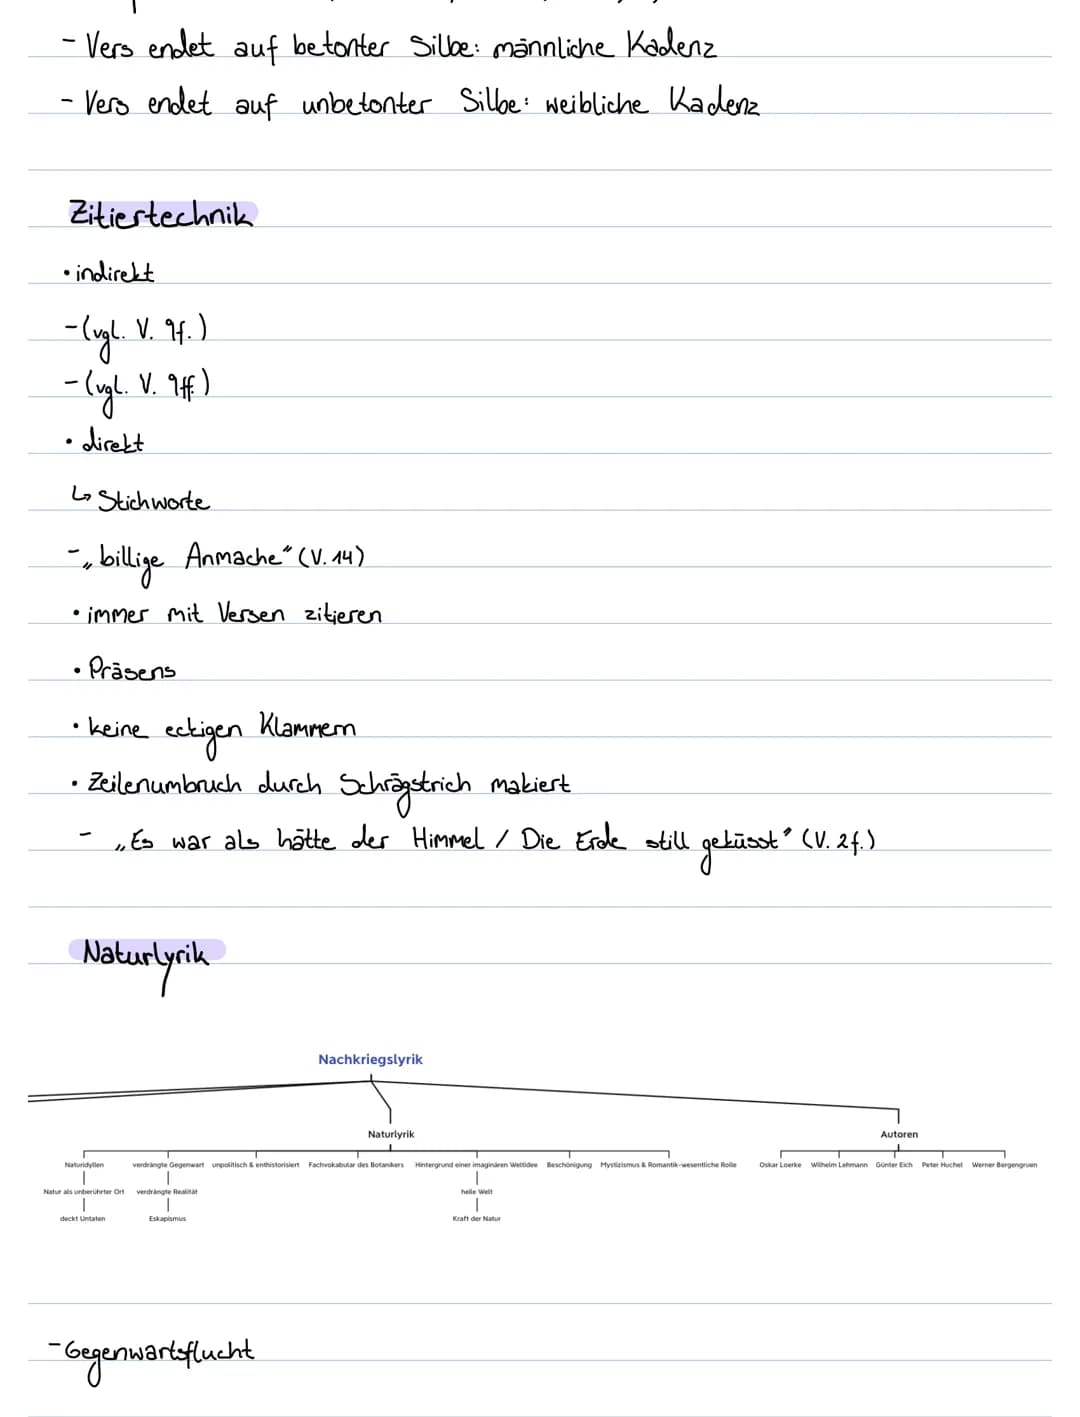 - Vers endet auf betonter Silbe: männliche Kadenz
- Vers endet auf unbetonter Silbe: weibliche Kadenz
Zitiertechnik
• indirekt
- (vgl. V. 9f.)
- (vgl. V. 9ff.)
• direkt
↳ Stichworte
- „billige Anmache“ (V. 14)
• immer mit Versen zitieren
• Präsens
• keine eckigen Klammern
• Zeilenumbruch durch Schrägstrich makiert
- „Es war als hätte der Himmel / Die Erde still geküsst“ (V. 2f.)
Naturlyrik
Nachkriegslyrik
Naturlyrik Autoren
Naturidyllen verdrängte Gegenwart unpolitisch & enthistorisiert Fachvokabular des Botanikers Hintergrund einer imaginären Weltidee Beschönigung Mystizismus & Romantik-wesentliche Rolle Oskar Loerke Wilhelm Lehmann Günter Eich Peter Huchel Werner Bergengruen
Natur als unberührter Ort verdrängte Realität heile Welt
deckt Untaten Eskapismus Kraft der Natur
- Gegenwartsflucht